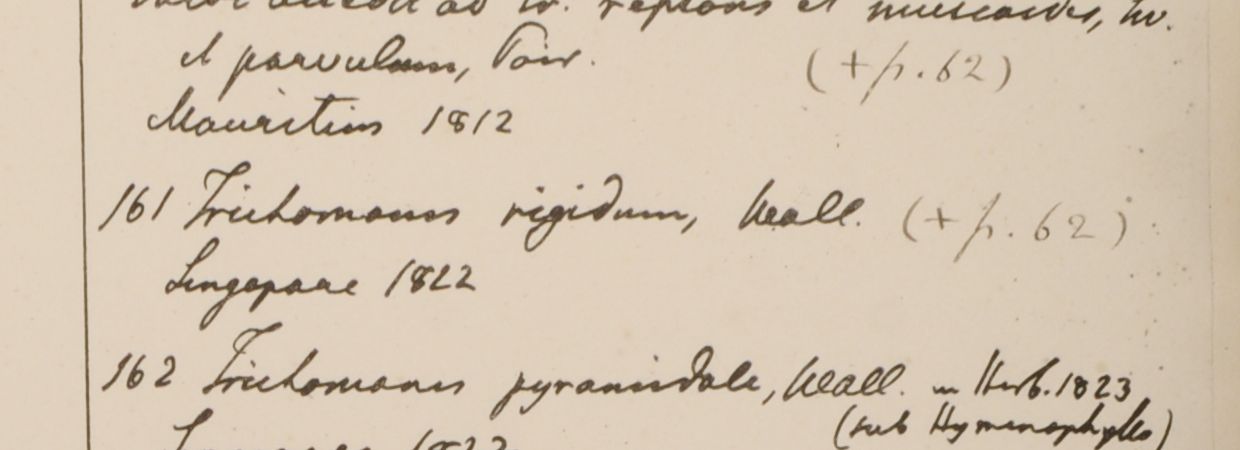 ad Tr. reptans et muscoides, Sw.
et parvulum, Poir. (+p. 62)
Mauritius 1812
161 Trichomanes rigidum, Wall. (+p. 62)
Singapore 1822
162 Trichomanes pyramidale, Wall. in Herb. 1823
(sub Hymenophyllo)
1822